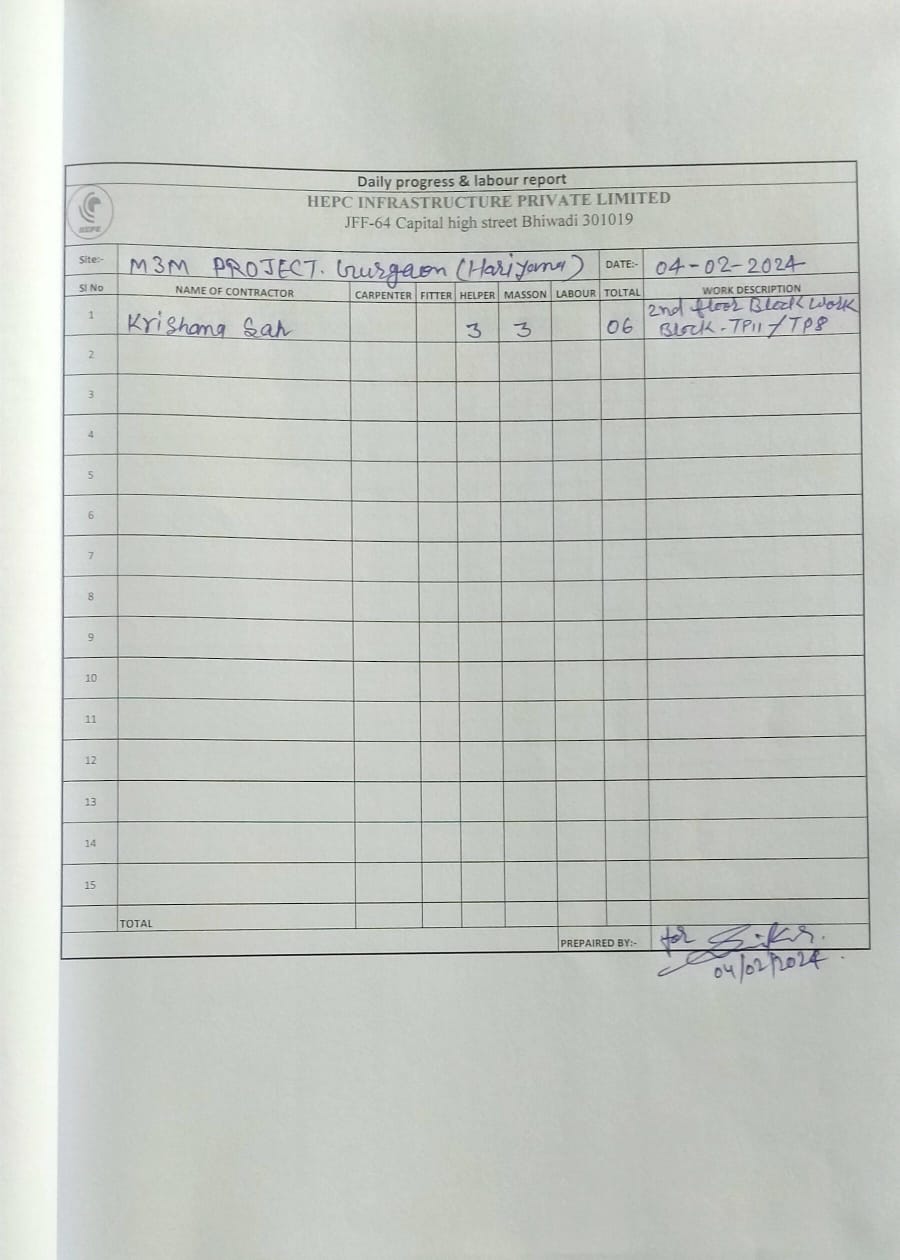 Daily progress & labour report
HEPC INFRASTRUCTURE PRIVATE LIMITED
JFF-64 Capital high street Bhiwadi 301019
HEPC
Site:- M3M PROJECT. Gurgaon (Hariyana) DATE:- 04-02-2024
SI No NAME OF CONTRACTOR CARPENTER FITTER HELPER MASSON LABOUR TOLTAL WORK DESCRIPTION
1 Krishana Sah 3 3 06 2nd floor Block Work
Block-TP11/TP8
2
3
4
5
6
7
8
9
10
11
12
13
14
15
TOTAL
PREPAIRED BY:- for
04/02/2024